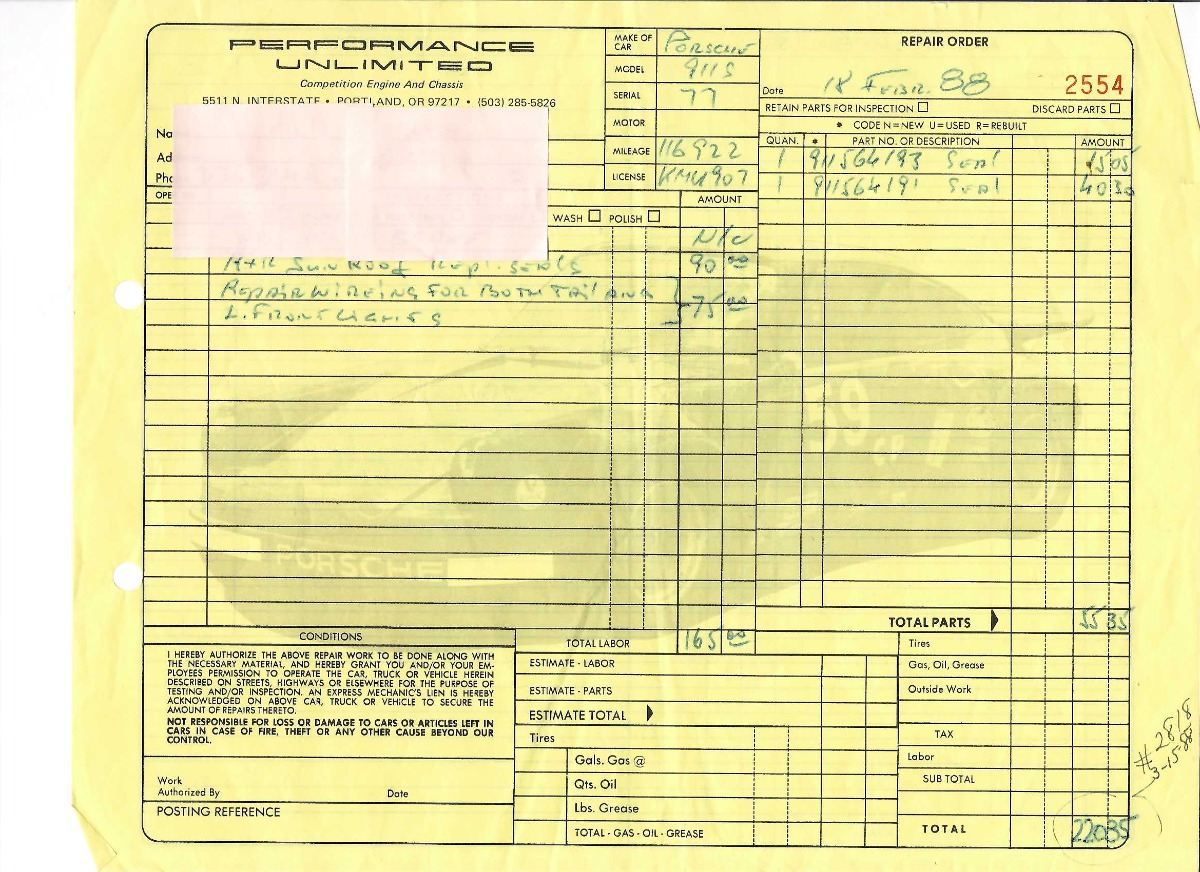 PERFORMANCE
UNLIMITED
Competition Engine And Chassis
5511 N. INTERSTATE • PORTLAND, OR 97217 • (503) 285-5826
Na
Ad
Pho
OPE
MAKE OF CAR PORSCHE
MODEL 911S
SERIAL 77
MOTOR
MILEAGE 116922
LICENSE KMU907
REPAIR ORDER
Date 18 FEBR. 88 2554
RETAIN PARTS FOR INSPECTION □ DISCARD PARTS □
* CODE N=NEW U=USED R=REBUILT
QUAN. * PART NO. OR DESCRIPTION AMOUNT
1 911564193 SEAL 15 05
1 911564191 SEAL 40 30
AMOUNT
WASH □ POLISH □
N/C
R+R SUNROOF REPL. SEALS 90 00
REPAIR WIREING FOR BOTH TAIL AND
L. FRONT LIGHTS 75 00
TOTAL PARTS 55 35
TOTAL LABOR 165 00
CONDITIONS
I HEREBY AUTHORIZE THE ABOVE REPAIR WORK TO BE DONE ALONG WITH
THE NECESSARY MATERIAL, AND HEREBY GRANT YOU AND/OR YOUR EM-
PLOYEES PERMISSION TO OPERATE THE CAR, TRUCK OR VEHICLE HEREIN
DESCRIBED ON STREETS, HIGHWAYS OR ELSEWHERE FOR THE PURPOSE OF
TESTING AND/OR INSPECTION. AN EXPRESS MECHANIC'S LIEN IS HEREBY
ACKNOWLEDGED ON ABOVE CAR, TRUCK OR VEHICLE TO SECURE THE
AMOUNT OF REPAIRS THERETO.
NOT RESPONSIBLE FOR LOSS OR DAMAGE TO CARS OR ARTICLES LEFT IN
CARS IN CASE OF FIRE, THEFT OR ANY OTHER CAUSE BEYOND OUR
CONTROL.
Work
Authorized By Date
POSTING REFERENCE
ESTIMATE - LABOR
ESTIMATE - PARTS
ESTIMATE TOTAL
Tires
Gals. Gas @
Qts. Oil
Lbs. Grease
TOTAL - GAS - OIL - GREASE
Tires
Gas, Oil, Grease
Outside Work
TAX
Labor
SUB TOTAL
TOTAL 220 35
#2818
3-15-88
PORSCHE
59